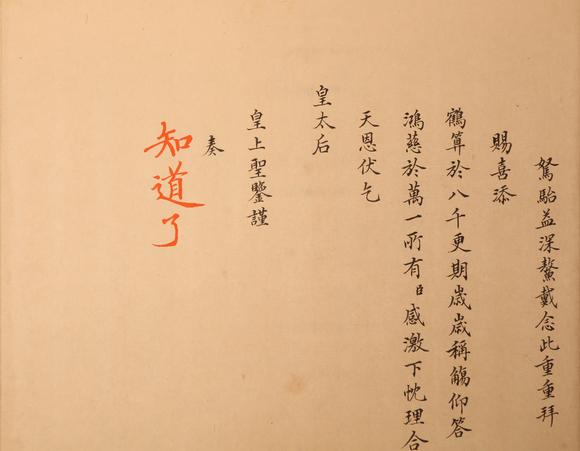 駑駘益深鰲戴念此重重拜
賜喜添
鶴算於八千更期歲歲稱觴仰答
鴻慈於萬一所有臣感激下忱理合
天恩伏乞
皇太后
皇上聖鑒謹
奏
知道了